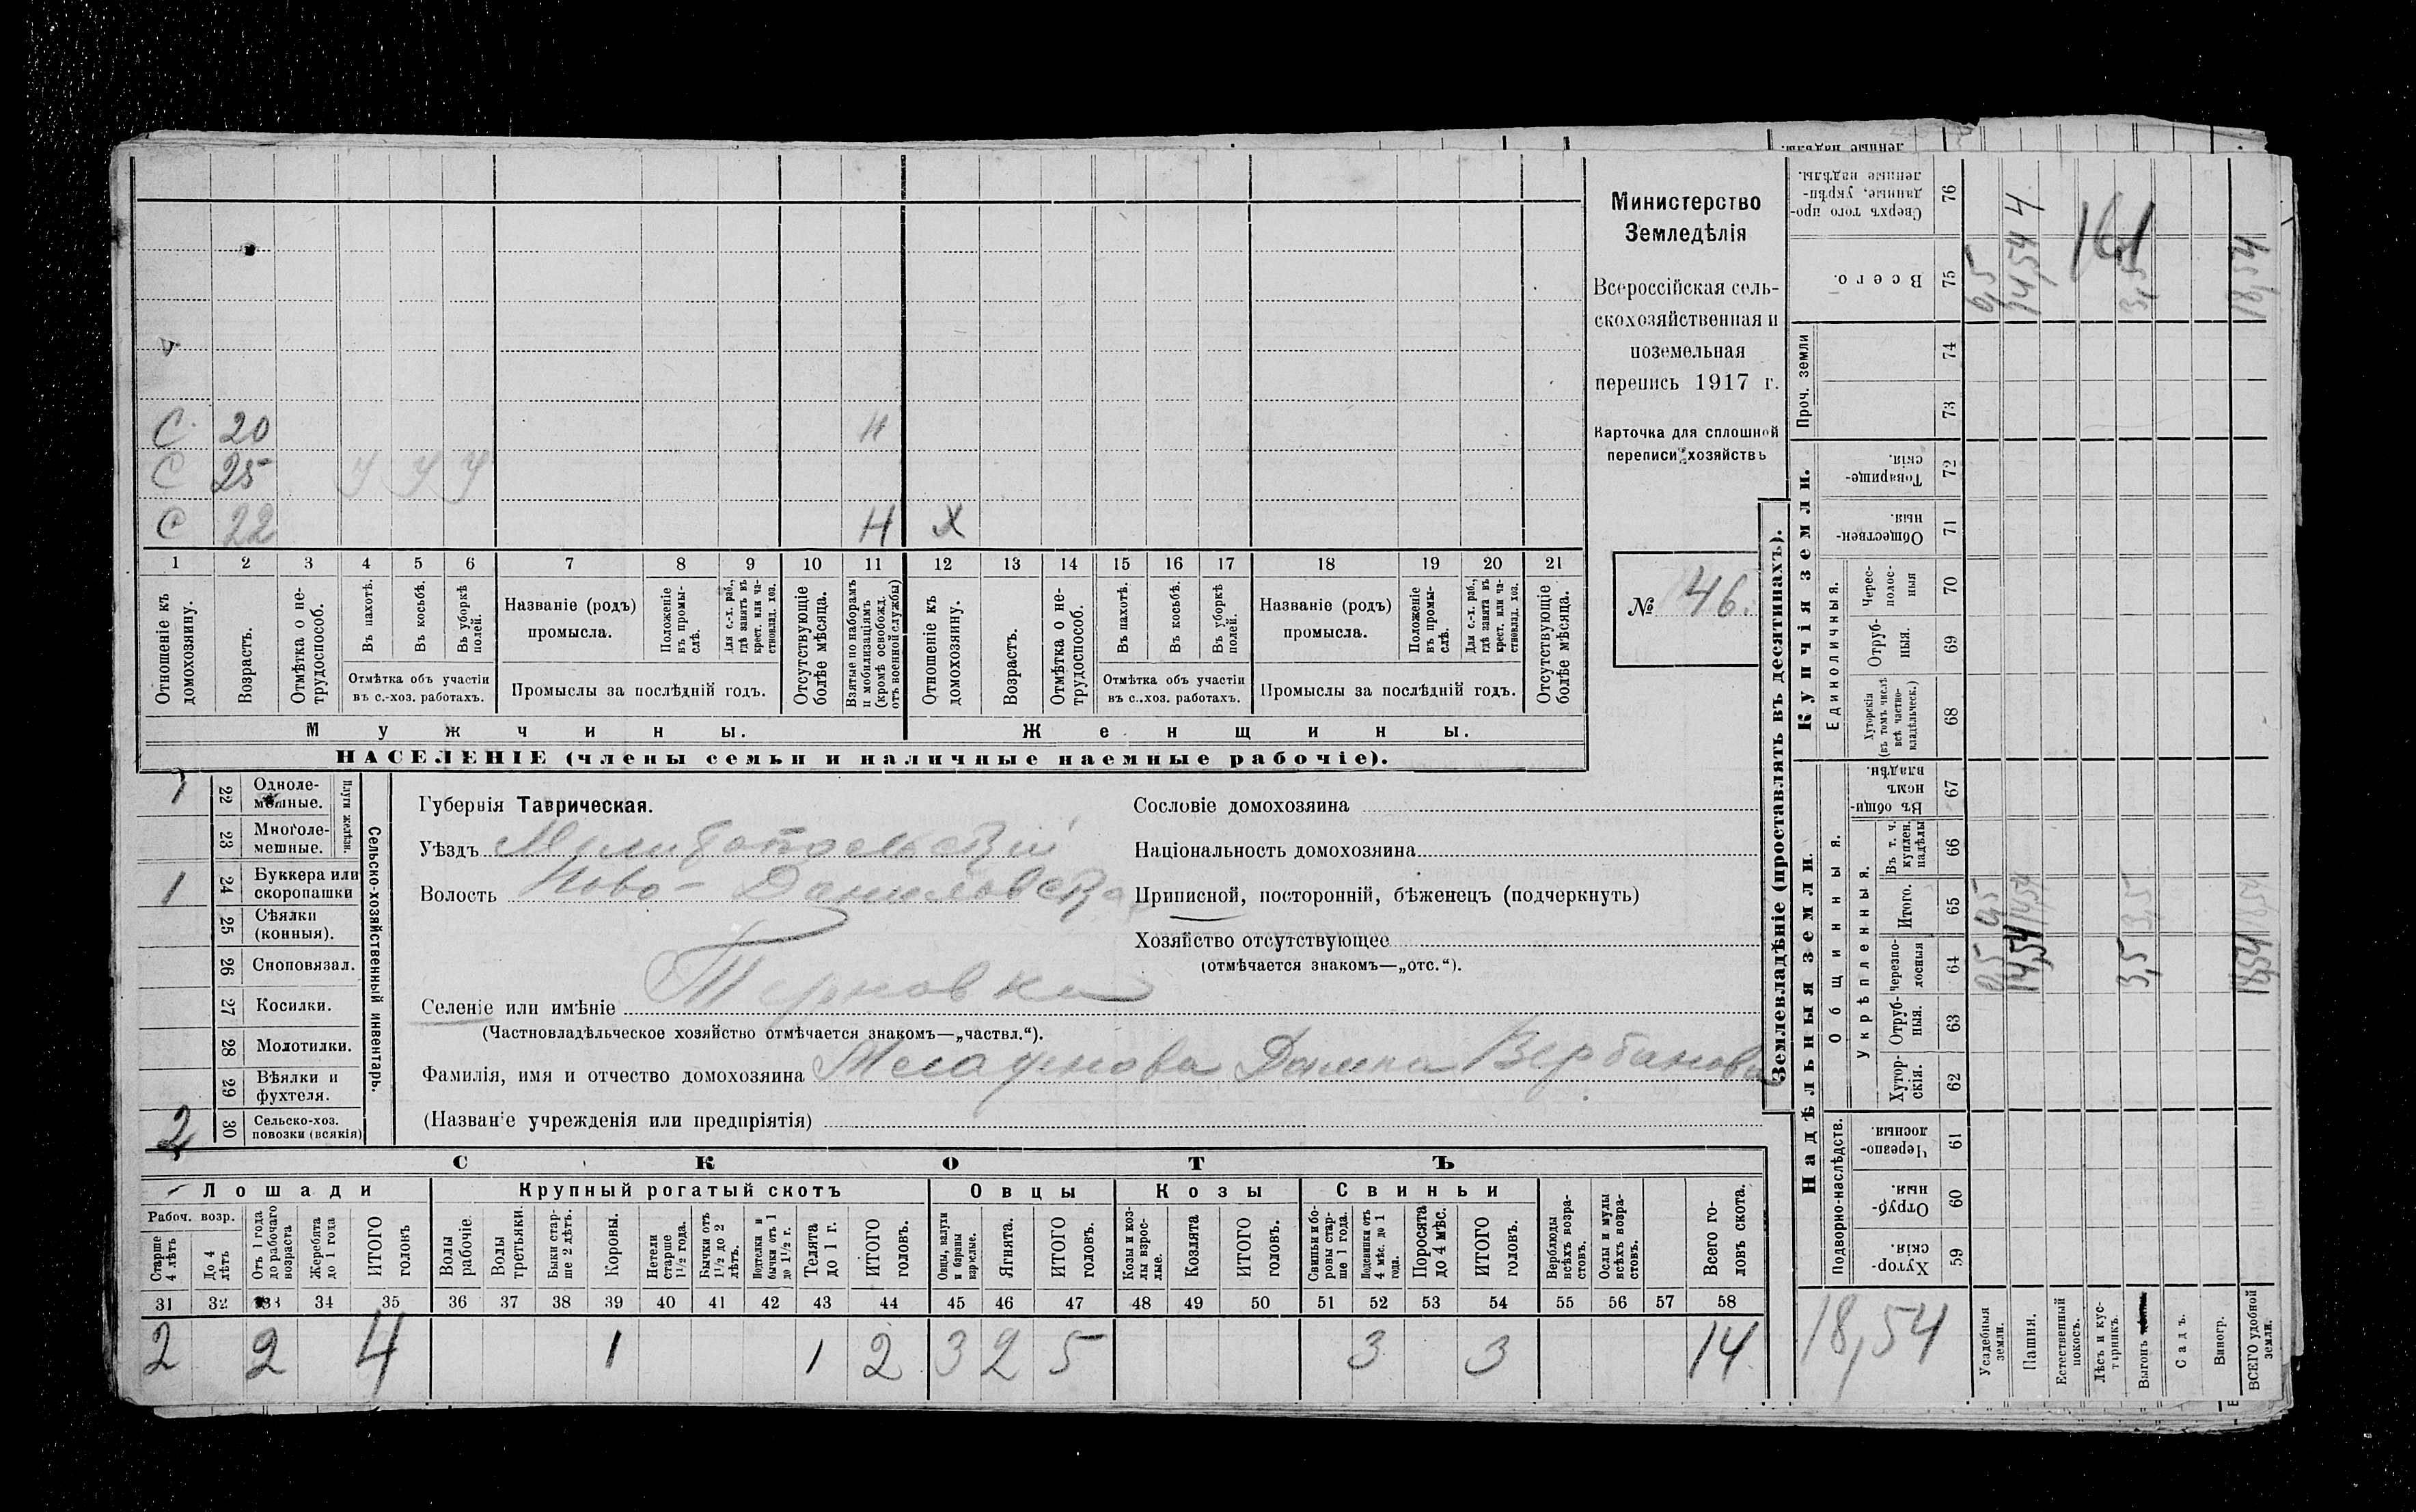 С 20 Н
С 25 у у у
С 22 Н Х
1 2 3 4 5 6 7 8 9 10 11 12 13 14 15 16 17 18 19 20 21
Отношеніе къ домохозяину.
Возрастъ.
Отмѣтка о не-трудоспособ.
Въ пахотѣ.
Въ косьбѣ.
Въ уборкѣ полей.
Отмѣтка объ участіи
въ с.-хоз. работахъ.
Названіе (родъ)
промысла.
Положеніе въ промы-слѣ.
Для с.-х. раб., гдѣ занятъ въ крест. или ча-стновлад. хоз.
Промыслы за послѣдній годъ.
Отсутствующіе болѣе мѣсяца.
Взятые по наборамъ и мобилизаціямъ (кромѣ освобожд. отъ военной службы)
Отношеніе къ домохозяину.
Возрастъ.
Отмѣтка о не-трудоспособ.
Въ пахотѣ.
Въ косьбѣ.
Въ уборкѣ полей.
Отмѣтка объ участіи
въ с.-хоз. работахъ.
Названіе (родъ)
промысла.
Положеніе въ промы-слѣ.
Для с.-х. раб., гдѣ занята въ крест. или ча-стновлад. хоз.
Промыслы за послѣдній годъ.
Отсутствующіе болѣе мѣсяца.
Мужчины. Женщины.
НАСЕЛЕНІЕ (члены семьи и наличные наемные рабочіе).
Министерство
Земледѣлія
Всероссійская сель-
скохозяйственная и
поземельная
перепись 1917 г.
Карточка для сплошной
переписи хозяйствъ
№ 46.
Сельско-хозяйственный инвентарь.
Плуги желѣзн.
1 22 Одноле-мешные.
23 Многоле-мешные.
1 24 Буккера или скоропашки
25 Сѣялки (конныя).
26 Сноповязал.
27 Косилки.
28 Молотилки.
29 Вѣялки и фухтеля.
2 30 Сельско-хоз. повозки (всякія)
Губернія Таврическая.
Уѣздъ Мелитопольскій
Волость Ново-Даниловская
Селеніе или имѣніе Терновка
(Частновладѣльческое хозяйство отмѣчается знакомъ—„частвл.“).
Фамилія, имя и отчество домохозяина
(Названіе учрежденія или предпріятія)
Сословіе домохозяина
Національность домохозяина
Приписной, посторонній, бѣженецъ (подчеркнуть)
Хозяйство отсутствующее
(отмѣчается знакомъ—„отс.“).
СКОТЪ
Лошади Крупный рогатый скотъ Овцы Козы Свиньи
Рабоч. возр.
Старше 4 лѣтъ
До 4 лѣтъ
Отъ 1 года до рабочаго возраста
Жеребята до 1 года
ИТОГО головъ
Волы рабочіе.
Волы третьяки.
Быки стар-ше 2 лѣтъ.
Коровы.
Нетели старше 1½ года.
Бычки отъ 1½ до 2 лѣтъ.
Подтелки и бычки отъ 1 до 1½ г.
Телята до 1 г.
ИТОГО головъ.
Овцы, валухи и бараны взрослые.
Ягнята.
ИТОГО головъ.
Козы и коз-лы взрос-лые.
Козлята
ИТОГО головъ.
Свиньи и бо-ровы стар-ше 1 года.
Подсвинки отъ 4 мѣс. до 1 года.
Поросята до 4 мѣс.
ИТОГО головъ.
Верблюды всѣхъ возра-стовъ.
Ослы и мулы всѣхъ возра-стовъ.
Всего го-ловъ скота.
31 32 33 34 35 36 37 38 39 40 41 42 43 44 45 46 47 48 49 50 51 52 53 54 55 56 57 58
2 2 4 1 1 2 3 2 5 3 3 14
Землевладѣніе (проставлять въ десятинахъ).
Купчія земли.
Надѣльныя земли.
Сверхъ того про-данные, укрѣп-ленные надѣлы. 76
Всего. 75
Проч. земли 74 73
Товарище-скія. 72
Обществен-ныя. 71
Единоличныя.
Черес-полос-ныя 70
Отруб-ныя. 69
Хуторскія (въ томъ числѣ всѣ частно-владѣльческ.) 68
Общинныя.
Въ общин-номъ владѣн. 67
Укрѣпленныя.
Въ т. ч. куплен. надѣлы 66
Итого. 65
Черезпо-лосныя 64
Отруб-ныя. 63
Хутор-скія. 62
Подворно-наслѣдств.
Черезпо-лосныя. 61
Отруб-ныя. 60
Хутор-скія. 59
18,54
Усадебныя земли. 0,5 0,5 0,5
Пашня. 14,54 14,54 14,54
Естественный покосъ.
Лѣсъ и кус-тарникъ.
Выгонъ 3,5 3,5 3,5
Садъ.
Виногр.
ВСЕГО удобной земли. 18,54 18,54 18,54